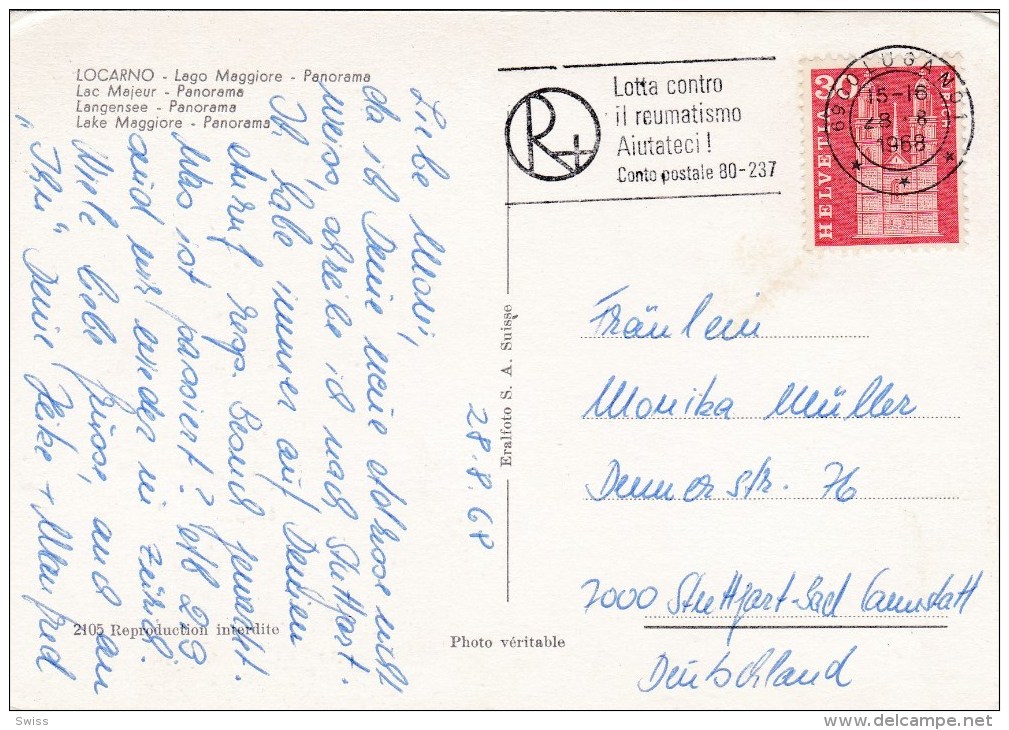 LOCARNO - Lago Maggiore - Panorama
Lac Majeur - Panorama
Langensee - Panorama
Lake Maggiore - Panorama
Lotta contro
il reumatismo
Aiutateci !
Conto postale 80-237
R+
6900 LUGANO 1
15-16
28 -8
1968
30
HELVETIA
Liebe Moni,
da ich Deine neue Adresse nicht
weiss, schreibe ich nach Stuttgart.
Ich habe immer auf Deinen
Anruf resp. Besuch gewartet.
Was ist passiert? Ab 2.9
sind wir wieder in Zürich.
Viele liebe Grüsse, auch an
Deine Heike + Manfred
28.8.68
Eralfoto S. A. Suisse
Fräulein
Monika Müller
Denner str. 76
7000 Stuttgart-Bad Cannstatt
Deutschland
2105 Reproduction interdite
Photo véritable
Swiss
www.delcampe.net